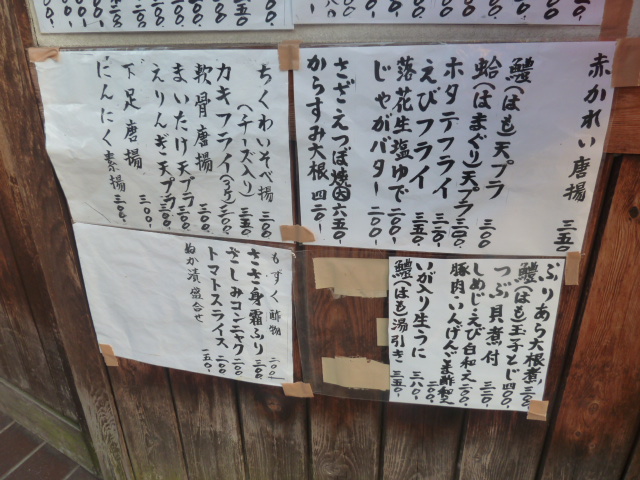 赤かれい唐揚 三五〇-
鱧(はも)天プラ 三〇〇
蛤(はまぐり)天プラ 三〇〇-
ホタテフライ 二〇〇-
えびフライ 三五〇-
落花生塩ゆで 二〇〇-
じゃがバター 二〇〇-
さざえつぼ焼 六五〇-
からすみ大根 四二〇-
ちくわいそべ揚 三〇〇
(チーズ入り) 三五〇
カキフライ 三〇〇-
軟骨唐揚 三〇〇-
まいたけ天プラ 三〇〇-
えりんぎ天プラ 三〇〇-
下足唐揚 三〇〇-
にんにく素揚 三〇〇-
ぶりあら大根煮 三〇〇-
鱧(はも)玉子とじ 四〇〇-
つぶ貝煮付 三二〇-
しめじえび白和え 二〇〇-
豚肉いんげんごま酢和え 二〇〇-
いが入り生うに 三八〇-
鱧(はも)湯引き 三五〇-
もずく酢物 二〇〇
ささ身霜ふり 三〇〇-
さしみコンニャク 二〇〇
トマトスライス 二〇〇
ぬか漬盛合せ 一五〇-